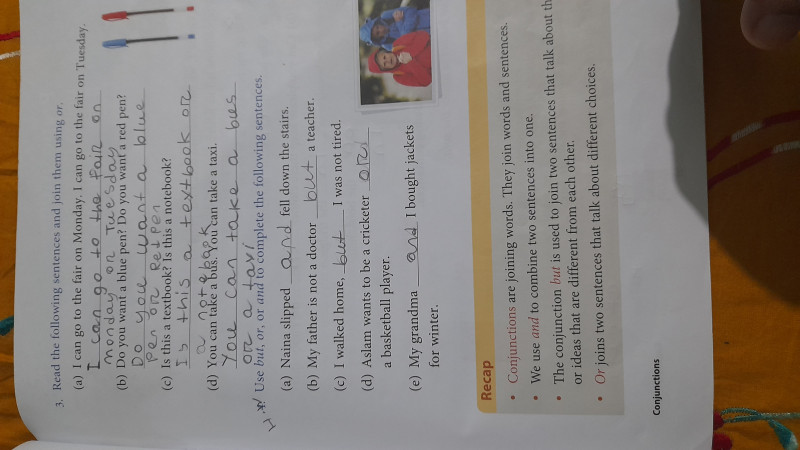 3. Read the following sentences and join them using or.
(a) I can go to the fair on Monday. I can go to the fair on Tuesday.
I can go to the fair on
monday or Tuesday
(b) Do you want a blue pen? Do you want a red pen?
Do you want a blue
pen or ret pen
(c) Is this a textbook? Is this a notebook?
Is this a textbook or
a notebook
(d) You can take a bus. You can take a taxi.
You can take a bus
or a taxi
4. Use but, or, or and to complete the following sentences.
(a) Naina slipped and fell down the stairs.
(b) My father is not a doctor but a teacher.
(c) I walked home, but I was not tired.
(d) Aslam wants to be a cricketer
a basketball player.
(e) My grandma and I bought jackets
for winter.
Recap
• Conjunctions are joining words. They join words and sentences.
• We use and to combine two sentences into one.
• The conjunction but is used to join two sentences that talk about
or ideas that are different from each other.
• Or joins two sentences that talk about different choices.
Conjunctions